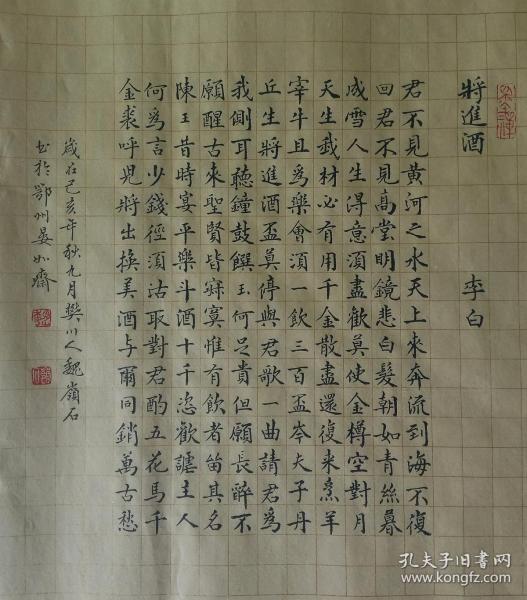 將進酒 李白
君不見黃河之水天上來奔流到海不復
回君不見高堂明鏡悲白髮朝如青絲暮
成雪人生得意須盡歡莫使金樽空對月
天生我材必有用千金散盡還復來烹羊
宰牛且為樂會須一飲三百盃岑夫子丹
丘生將進酒盃莫停與君歌一曲請君為
我側耳聽鐘鼓饌玉何足貴但願長醉不
願醒古來聖賢皆寂寞惟有飲者留其名
陳王昔時宴平樂斗酒十千恣歡謔主人
何為言少錢徑須沽取對君酌五花馬千
金裘呼兒將出換美酒与爾同銷萬古愁
歲在己亥年秋九月樊川人魏嶺石
书於鄂州晏如齋
孔夫子旧书网
www.kongfz.com